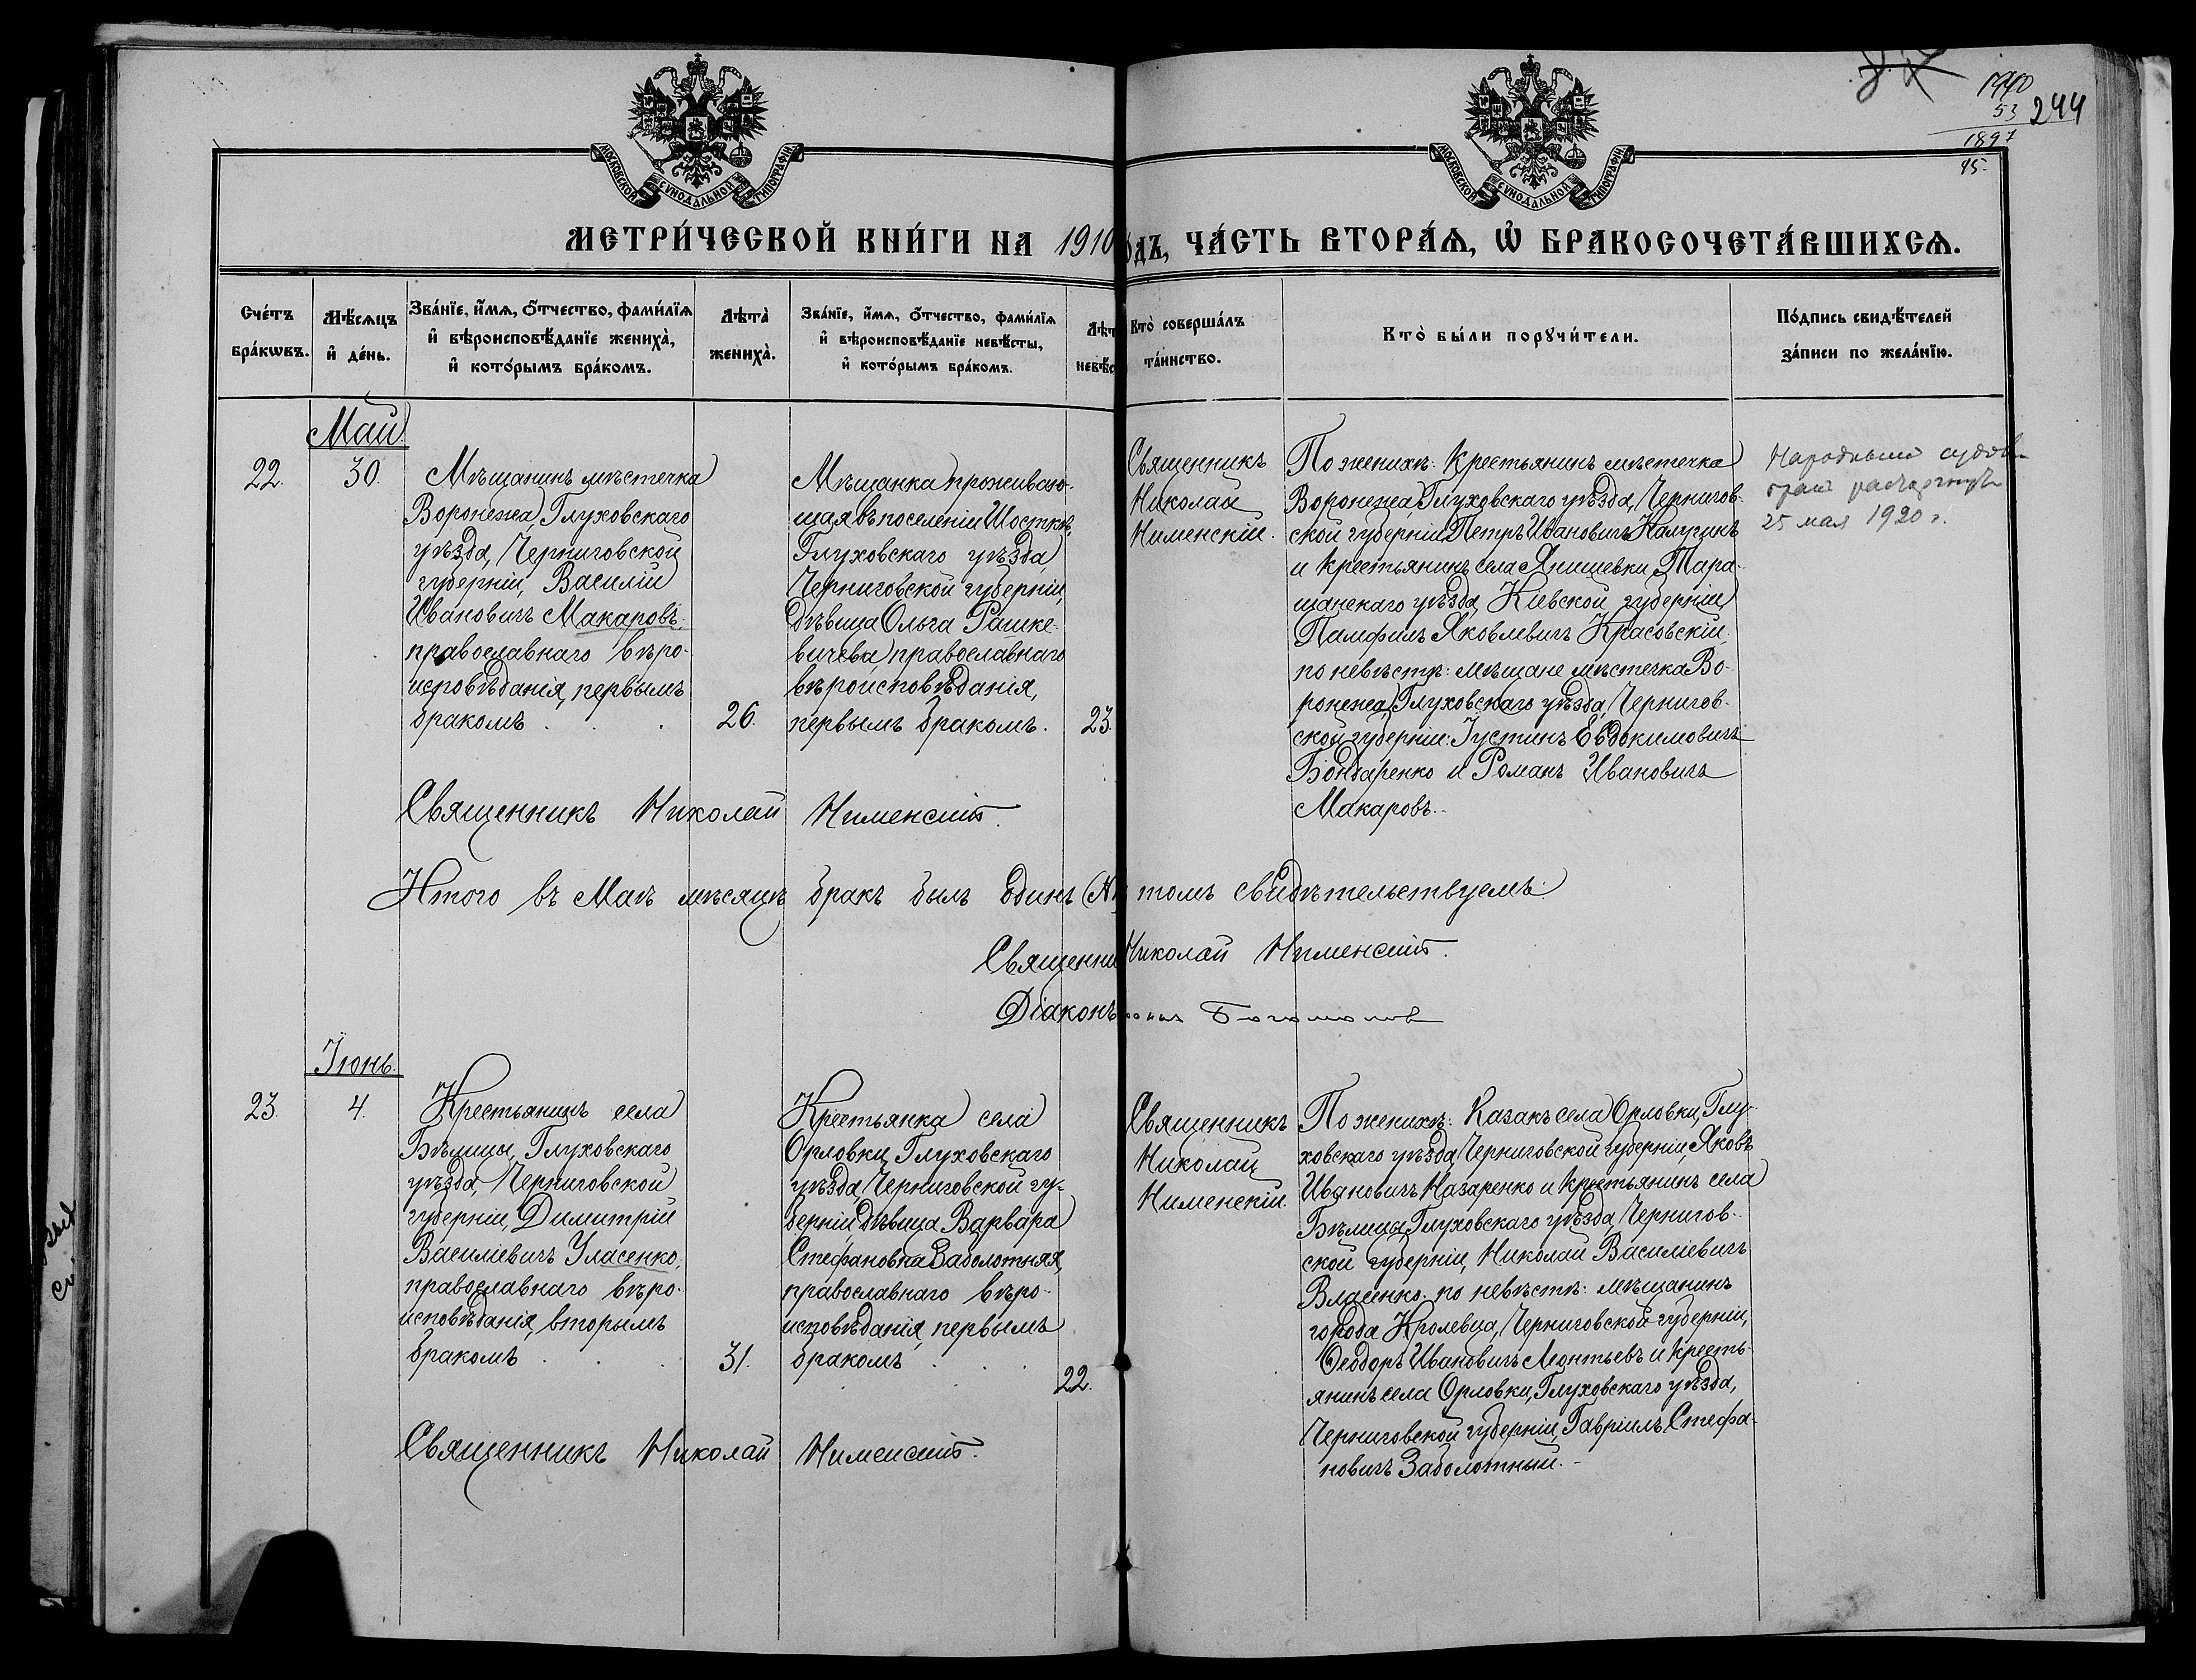 1910
53
244
1897
45.
МОСКОВСКОЙ СѴНОДАЛЬНОЙ ТИПОГРАФІИ
МОСКОВСКОЙ СѴНОДАЛЬНОЙ ТИПОГРАФІИ
МЕТРИ́ЧЕСКОЙ КНИ́ГИ НА 1910
ѻ́дъ, ЧА́СТЬ ВТОРА́Ѧ, Ѡ҆ БРАКОСОЧЕТА́ВШИХСѦ.
Сче́тъ бра́кѡвъ.
Мѣ́сѧцъ и҆ де́нь.
Зва́нїе, и҆́мѧ, ѻ҆́тчество, фами́лїѧ
и҆ вѣроисповѣ́данїе жениха̀,
и҆ кото́рымъ бра́комъ.
Лѣта̀ жениха̀.
Зва́нїе, и҆́мѧ, ѻ҆́тчество, фами́лїѧ
и҆ вѣроисповѣ́данїе невѣ́сты,
и҆ кото́рымъ бра́комъ.
Лѣт
невѣ́с
Кто̀ соверша́лъ
та́инство.
Кто̀ бы́ли порꙋчи́тели.
По́дпись свидѣ́телей
за́писи по жела́нїю.
Май
22.
30.
Мѣщанинъ мѣстечка
Воронежа, Глуховскаго
уѣзда, Черниговской
губерніи, Василій
Ивановичъ Макаровъ,
православнаго вѣро-
исповѣданія, первымъ
бракомъ . . .
26.
Мѣщанка проживаю-
щая въ поселеніи Шосткѣ,
Глуховскаго уѣзда,
Черниговской губерніи,
дѣвица Ольга Рашке-
вичева, православнаго
вѣроисповѣданія,
первымъ бракомъ.
23.
Священникъ
Николай
Нименскій.
По женихѣ: Крестьянинъ мѣстечка
Воронежа, Глуховскаго уѣзда, Чернигов-
ской губерніи Петръ Ивановичъ Калугинъ
и крестьянинъ села Янишевки, Тара-
щанскаго уѣзда, Кіевской губерніи,
Памфилъ Яковлевичъ Красовскій;
по невѣстѣ: мѣщане мѣстечка Во-
ронежа, Глуховскаго уѣзда, Чернигов-
ской губерніи: Іустинъ Евдокимовичъ
Бондаренко и Романъ Ивановичъ
Макаровъ.
Народным судом
брак расторгнут
25 мая 1920 г.
Священникъ Николай Нименскій.
Итого въ Маѣ мѣсяцѣ бракъ былъ одинъ (А
томъ свидѣтельствуемъ:
Священни
Николай Нименскій.
Діаконъ
Богомолов
Іюнь.
23.
4.
Крестьянинъ села
Бѣлицы, Глуховскаго
уѣзда, Черниговской
губерніи, Димитрій
Василіевичъ Уласенко,
православнаго вѣро-
исповѣданія, вторымъ
бракомъ . . .
31.
Крестьянка села
Орловки, Глуховскаго
уѣзда, Черниговской гу-
берніи, дѣвица Варвара
Стефановна Заболотная,
православнаго вѣро-
исповѣданія, первымъ
бракомъ . . .
22.
Священникъ
Николай
Нименскій.
По женихѣ: Казакъ села Орловки, Глу-
ховскаго уѣзда, Черниговской губерніи, Яковъ
Ивановичъ Назаренко и крестьянинъ села
Бѣлицы, Глуховскаго уѣзда, Чернигов-
ской губерніи, Николай Василіевичъ
Власенко; по невѣстѣ: мѣщанинъ
города Кролевца, Черниговской губерніи,
Ѳеодоръ Ивановичъ Леонтьевъ и кресть-
янинъ села Орловки, Глуховскаго уѣзда,
Черниговской губерніи, Гавріилъ Стефа-
новичъ Заболотный.
Священникъ Николай Нименскій.